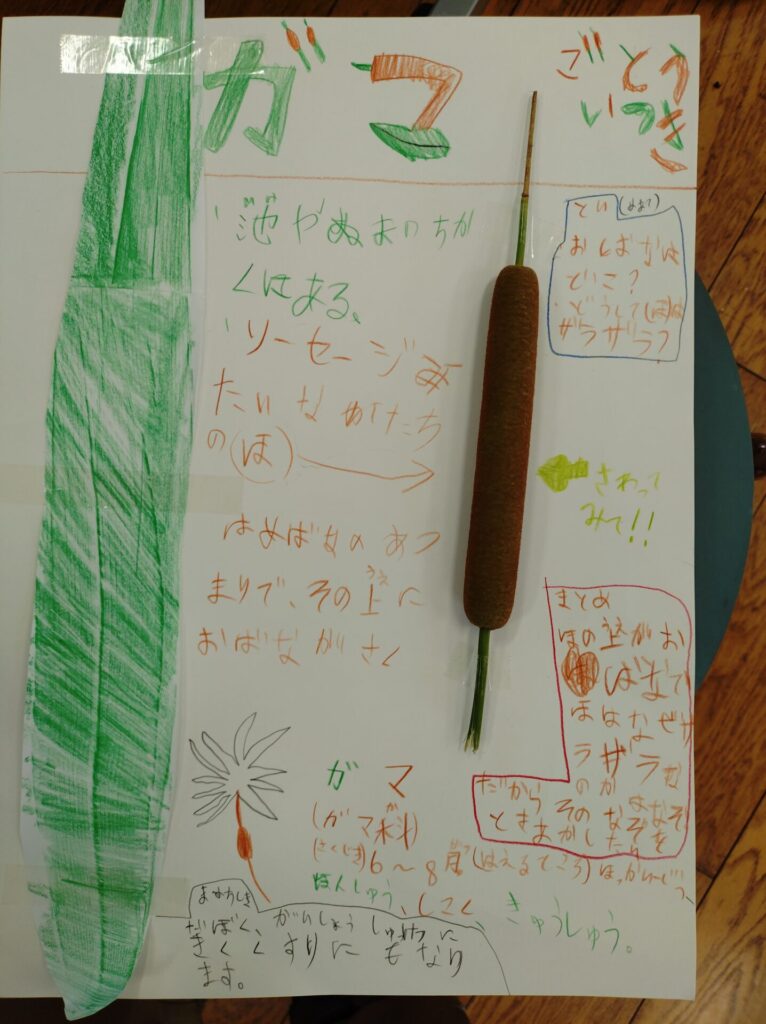 ガマ
ごとう
いつき
池やぬまのちか
くにある、
ソーセージみ
たいなかたち
の(ほ)
とい(めあて)
おしばなは
どこ?
どうして(ほ)は
ザラザラ?
さわって
みて!!
はめばなのあつ
まりで、その上に
うえ
おばながさく
まとめ
ほの上がお
ばなで
ほはなぜザ
ラザラな
のか
だから そのなぞなぞ
ときあかしたい
ガマ
(ガマ科)
か
6〜8月
(はえるところ)ほっかいどう、
ほんしゅう、しこく、きゅうしゅう。
まめちしき
だぼく、がいしょう しゅけつに
きくくすりにもなり
ます。